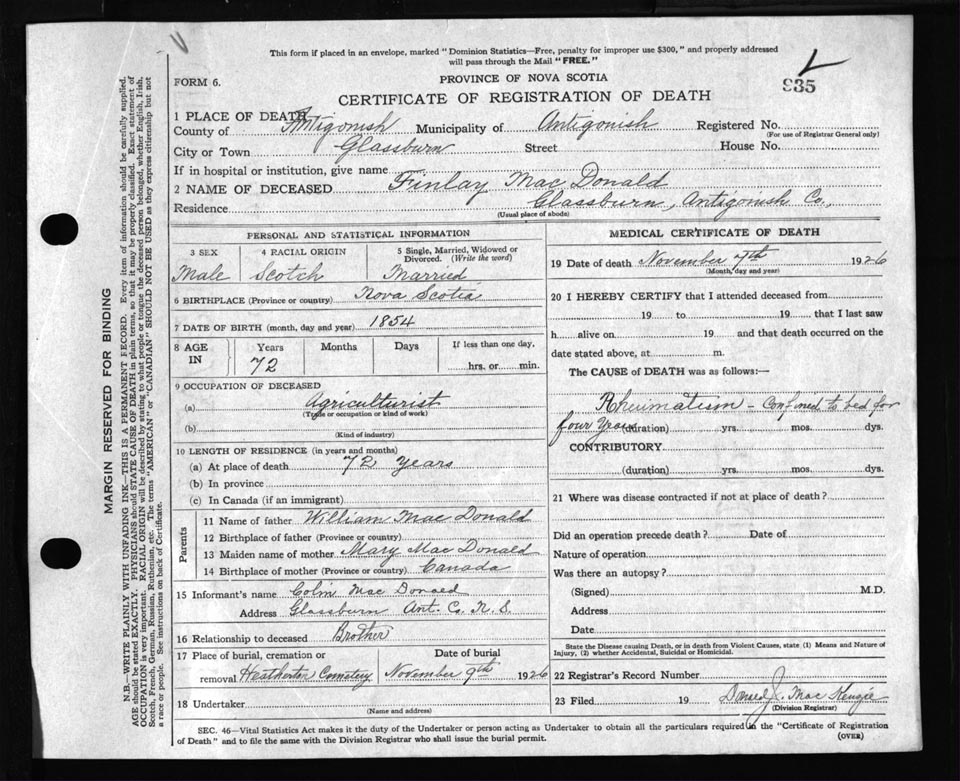 This form if placed in an envelope, marked "Dominion Statistics—Free, penalty for improper use $300," and properly addressed
will pass through the Mail "FREE."
FORM 6.
PROVINCE OF NOVA SCOTIA
935
CERTIFICATE OF REGISTRATION OF DEATH
1 PLACE OF DEATH
County of Antigonish Municipality of Antigonish Registered No.
(For use of Registrar General only)
City or Town Glassburn Street House No.
If in hospital or institution, give name
2 NAME OF DECEASED Finlay Mac Donald
Residence Glassburn, Antigonish Co.,
(Usual place of abode)
PERSONAL AND STATISTICAL INFORMATION
3 SEX 4 RACIAL ORIGIN 5 Single, Married, Widowed or
Divorced. (Write the word)
Male Scotch Married
6 BIRTHPLACE (Province or country) Nova Scotia
7 DATE OF BIRTH (month, day and year) 1854
8 AGE Years Months Days If less than one day,
IN 72 hrs. or min.
9 OCCUPATION OF DECEASED
(a) Agriculturist
(Trade or occupation or kind of work)
(b)
(Kind of industry)
10 LENGTH OF RESIDENCE (in years and months)
(a) At place of death 72 years
(b) In province
(c) In Canada (if an immigrant)
Parents
11 Name of father William Mac Donald
12 Birthplace of father (Province or country)
13 Maiden name of mother Mary Mac Donald
14 Birthplace of mother (Province or country) Canada
15 Informant's name Colin Mac Donald
Address Glassburn Ant. Co. N. S.
16 Relationship to deceased Brother
17 Place of burial, cremation or Date of burial
removal Heatherton Cemetery November 9th 1926
18 Undertaker
(Name and address)
MEDICAL CERTIFICATE OF DEATH
19 Date of death November 7th 1926
(Month, day and year)
20 I HEREBY CERTIFY that I attended deceased from
19 to 19 that I last saw
h alive on 19 and that death occurred on the
date stated above, at m.
The CAUSE of DEATH was as follows:—
Rheumatism - Confined to bed for
four years (duration) yrs. mos. dys.
CONTRIBUTORY
(duration) yrs. mos. dys.
21 Where was disease contracted if not at place of death?
Did an operation precede death? Date of
Nature of operation
Was there an autopsy?
(Signed) M.D.
Address
Date
State the Disease causing Death, or in death from Violent Causes, state (1) Means and Nature of
Injury, (2) whether Accidental, Suicidal or Homicidal.
22 Registrar's Record Number
23 Filed 19 Daniel J. Mac Kenzie
(Division Registrar)
SEC. 46—Vital Statistics Act makes it the duty of the Undertaker or person acting as Undertaker to obtain all the particulars required in the "Certificate of Registration
of Death" and to file the same with the Division Registrar who shall issue the burial permit.
(OVER)
MARGIN RESERVED FOR BINDING
N.B.—WRITE PLAINLY WITH UNFADING INK—THIS IS A PERMANENT RECORD. Every item of information should be carefully supplied.
AGE should be stated EXACTLY. PHYSICIANS should STATE CAUSE OF DEATH in plain terms, so that it may be properly classified. Exact statement of
OCCUPATION is very important. RACIAL ORIGIN will be described by stating to what people or tongue the deceased person belonged, whether English, Irish,
Scotch, French, German, Russian, Ruthenian, etc. The terms "AMERICAN" or "CANADIAN" SHOULD NOT BE USED as they express citizenship but not
a race or people. See instructions on back of Certificate.